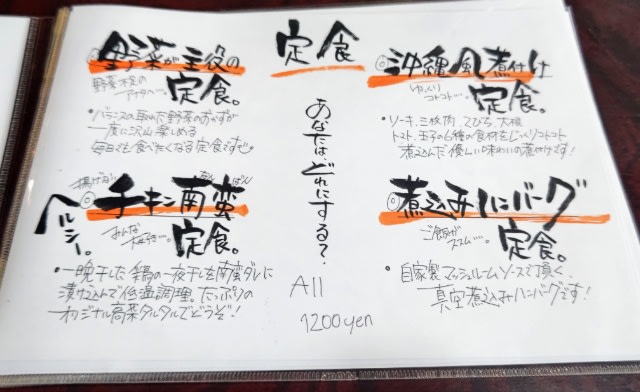 定食
あなたはどれにする?
All
1200yen
◎野菜が主役の
定食。
・バランスの取れた野菜のおかずが
一度に沢山楽しめる
毎日でも食べたくなる定食ですよ
◎沖縄風煮付け
ゆっくり
コトコト…
定食。
・ソーキ、三枚肉、てびち、大根
トマト、玉子の6種の食材をじっくりコトコト
煮込んだ優しい味わいの煮付けです!
揚げない なん ばん
ヘルシー。
◎チキン南蛮
みんな
大好き…
定食。
・一晩干した鶏の一夜干しを南蛮ダレに
漬け込んで低温調理。たっぷりの
オリジナル高菜タルタルでどうぞ!
◎煮込みハンバーグ
ご飯が
ススム…。
定食。
・自家製マッシュルームソースで頂く、
真空煮込みハンバーグです!